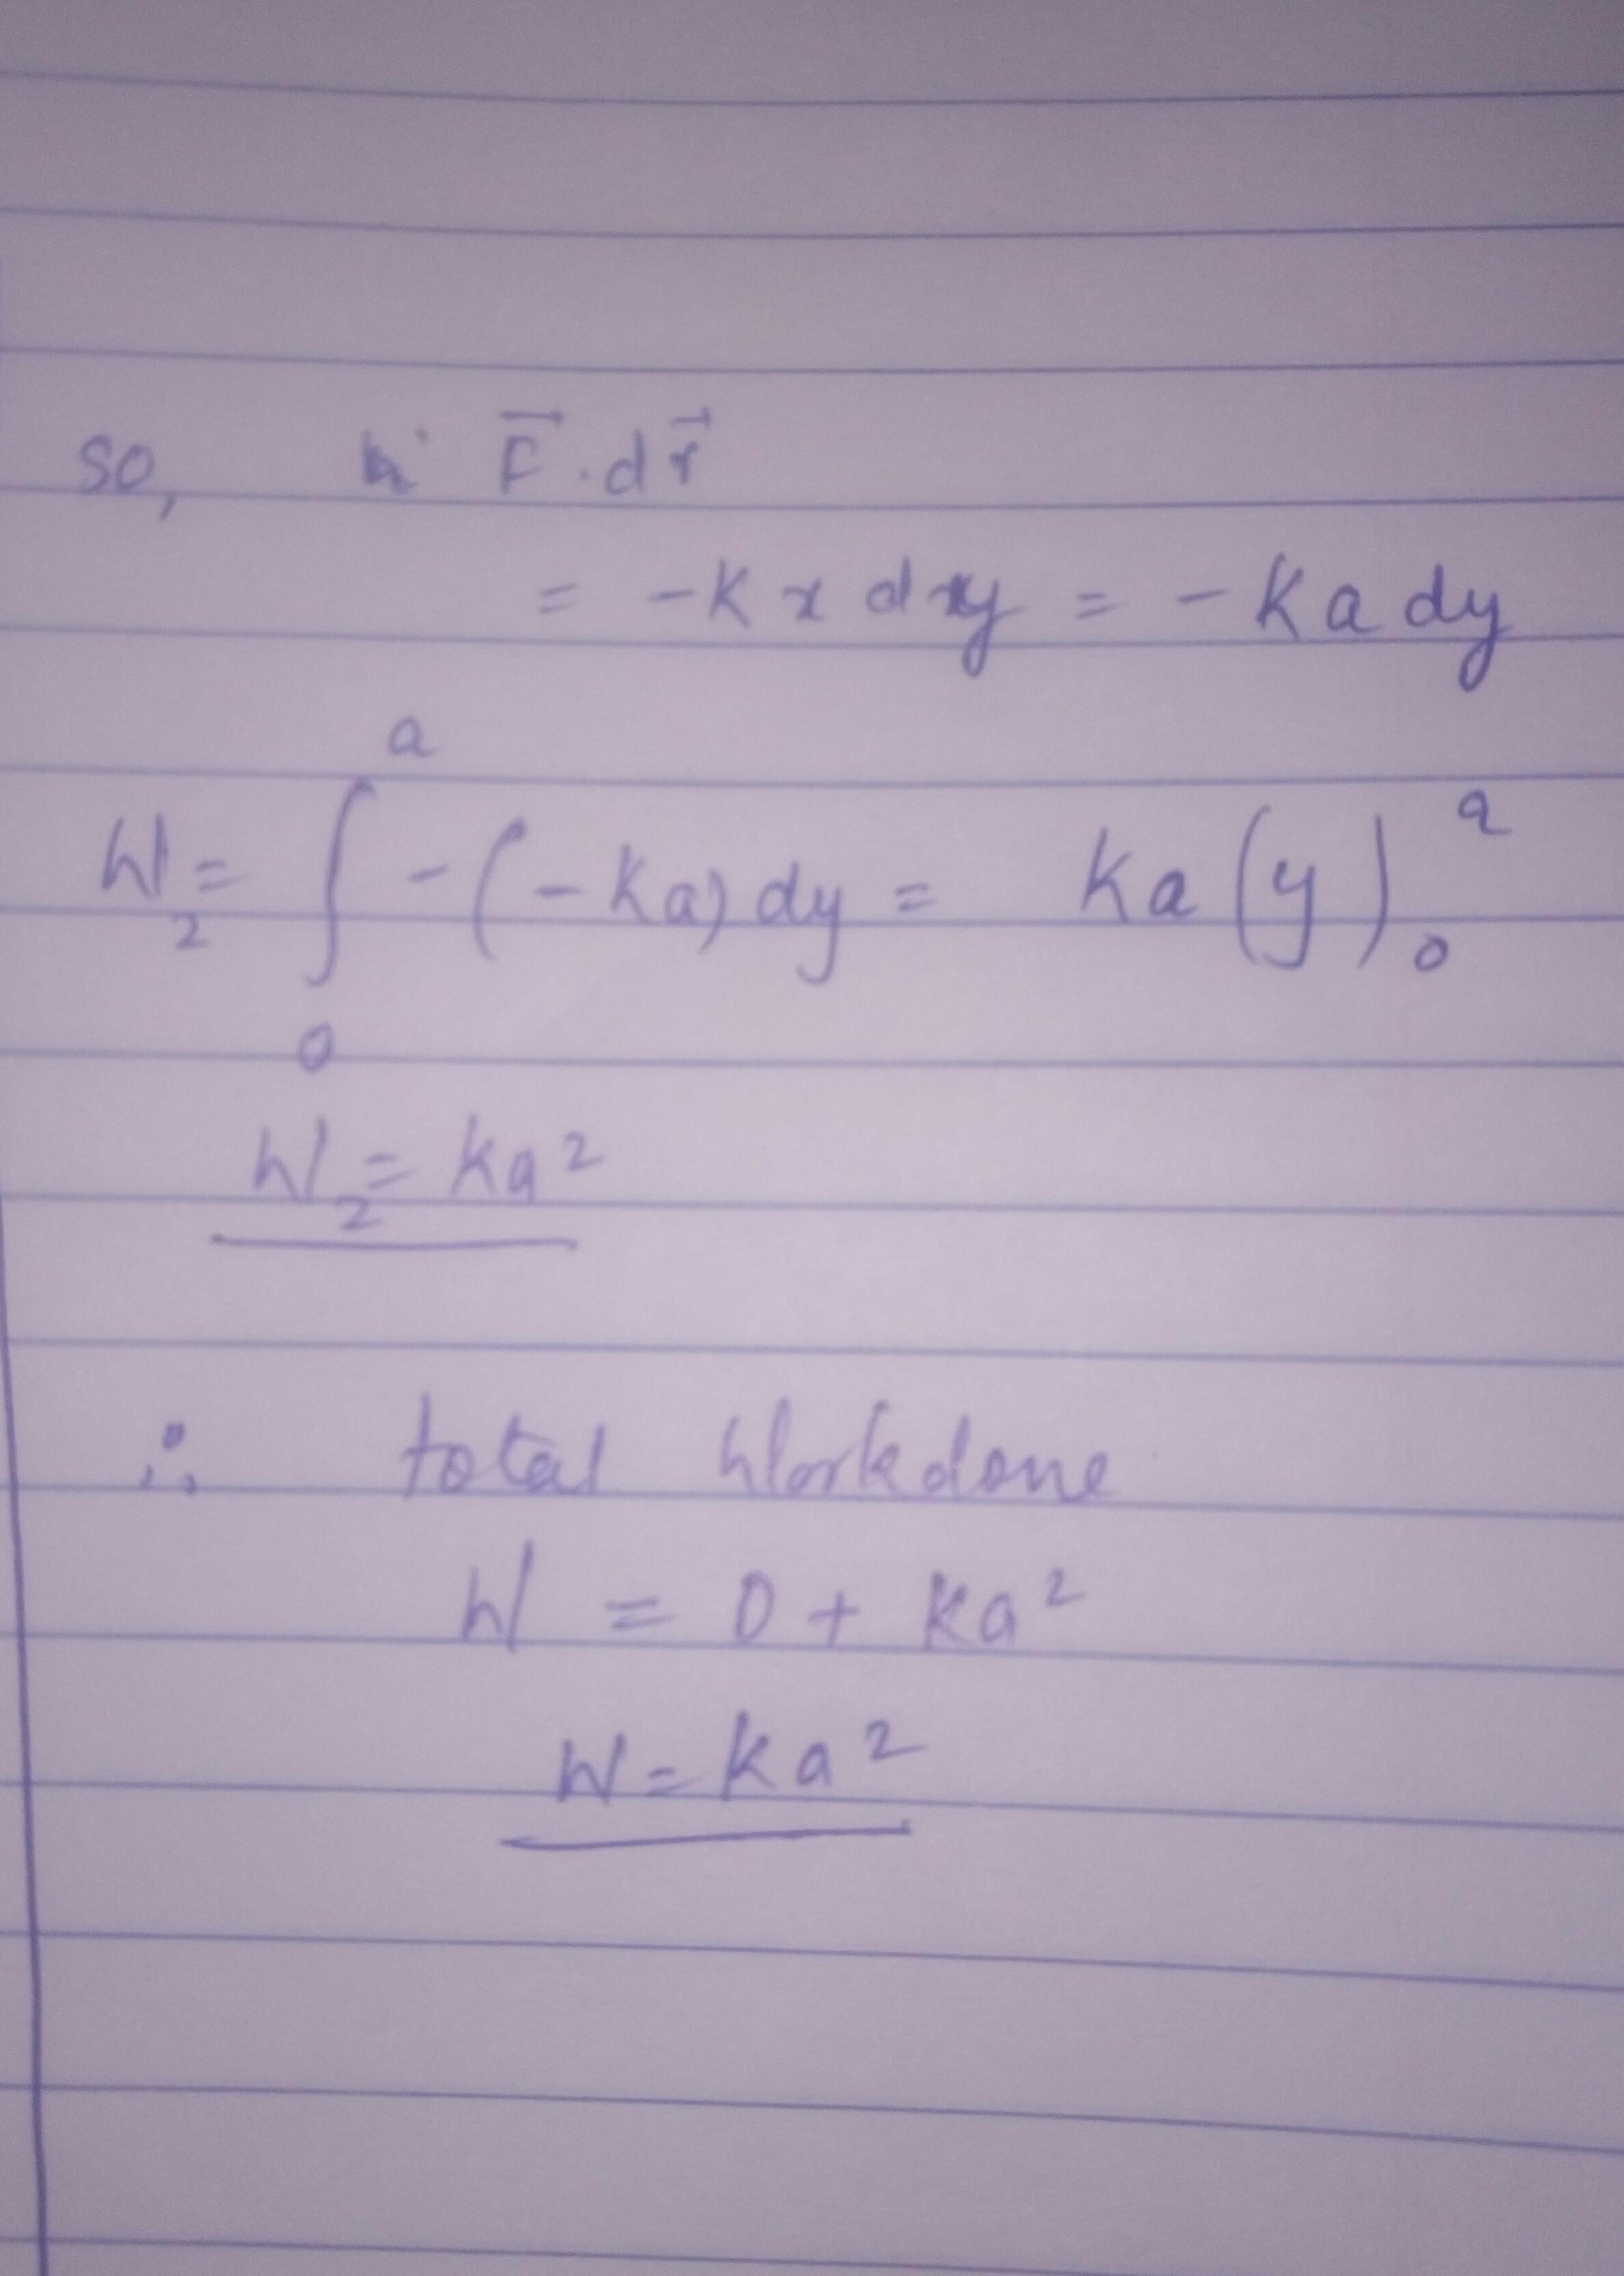 so, F⃗ . dr⃗
= -K x dy = - Ka dy
W₂ = ∫₀ᵃ -(-Ka) dy = Ka (y)₀ᵃ
W₂ = Ka²
∴ total Workdone
W = 0 + Ka²
W = Ka²